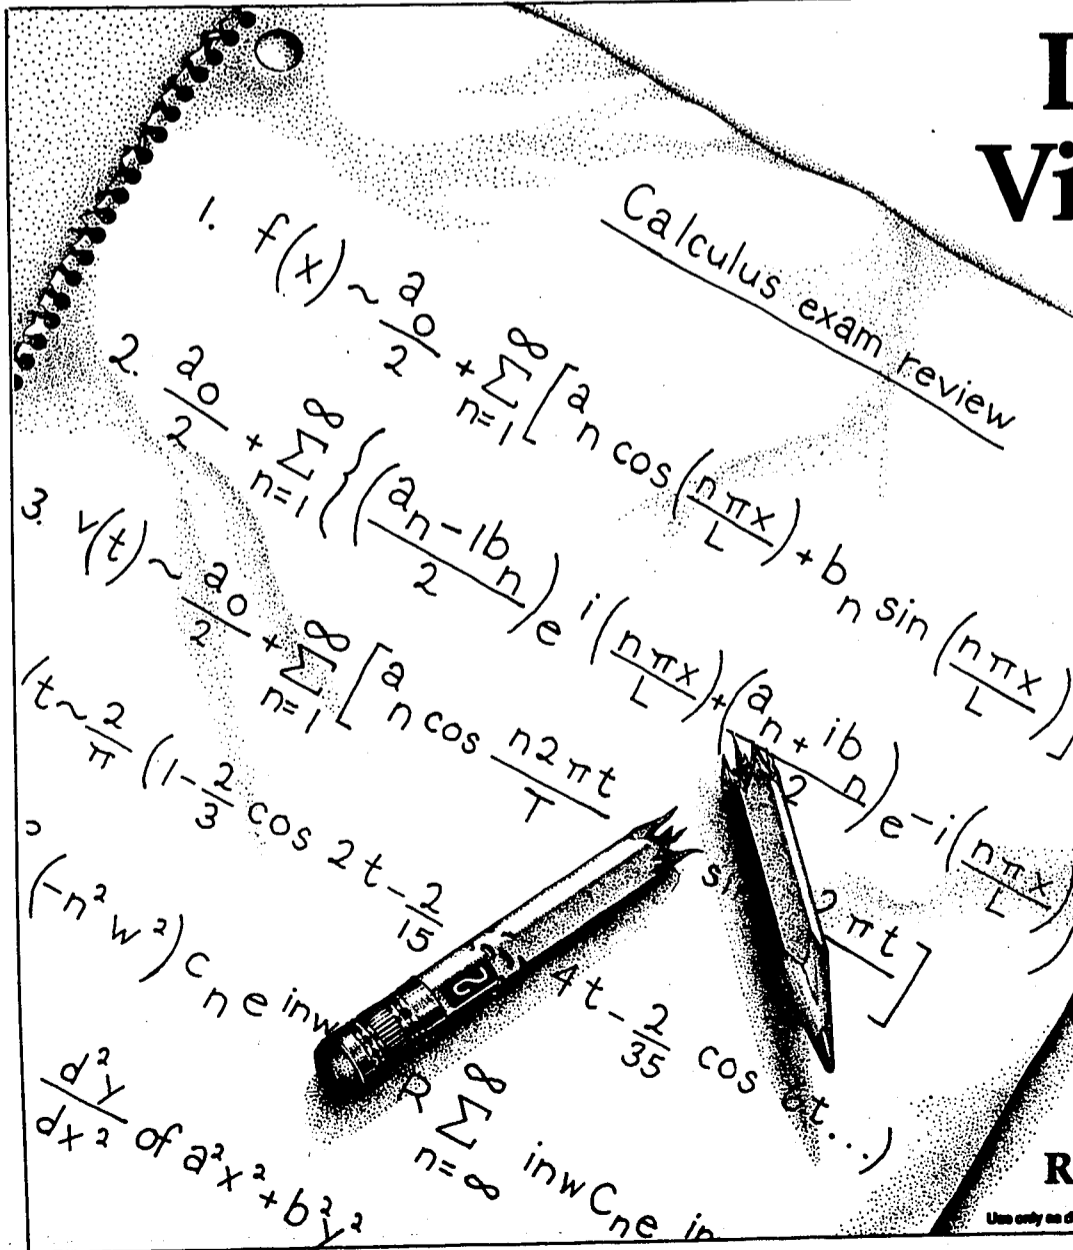 I
Vi
Calculus exam review
1. f(x) ~ a₀/2 + ∑ₙ₌₁^∞ [aₙ cos(nπx/L) + bₙ sin(nπx/L)]
2. a₀/2 + ∑ₙ₌₁^∞ {((aₙ-ıbₙ)/2) e^i(nπx/L) + ((aₙ + ibₙ)/2) e^-i(nπx/L)
3. v(t) ~ a₀/2 + ∑ₙ₌₁^∞ [aₙ cos n2πt/T si 2πt]
(t ~ 2/π (1 - 2/3 cos 2t - 2/15 4t - 2/35 cos t...)
(-n²w²) Cₙe inw
R ∑ₙ₌∞^∞ inw Cₙe in
d²y/dx² of a²x² + b²y²
2
R
Use only as d